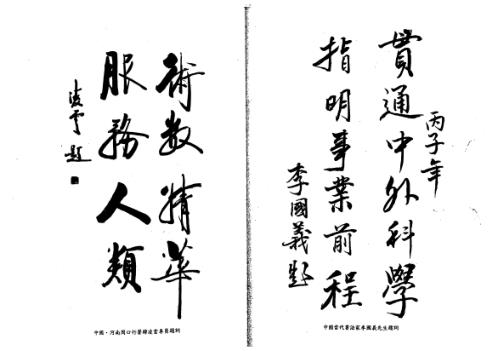 貫通中外科學
丙子年
指明事業前程
李國義題
中國當代書法家李國義先生題詞
術數精華
服務人類
凌雲題
中國·河南周口行署凌雲專員題詞